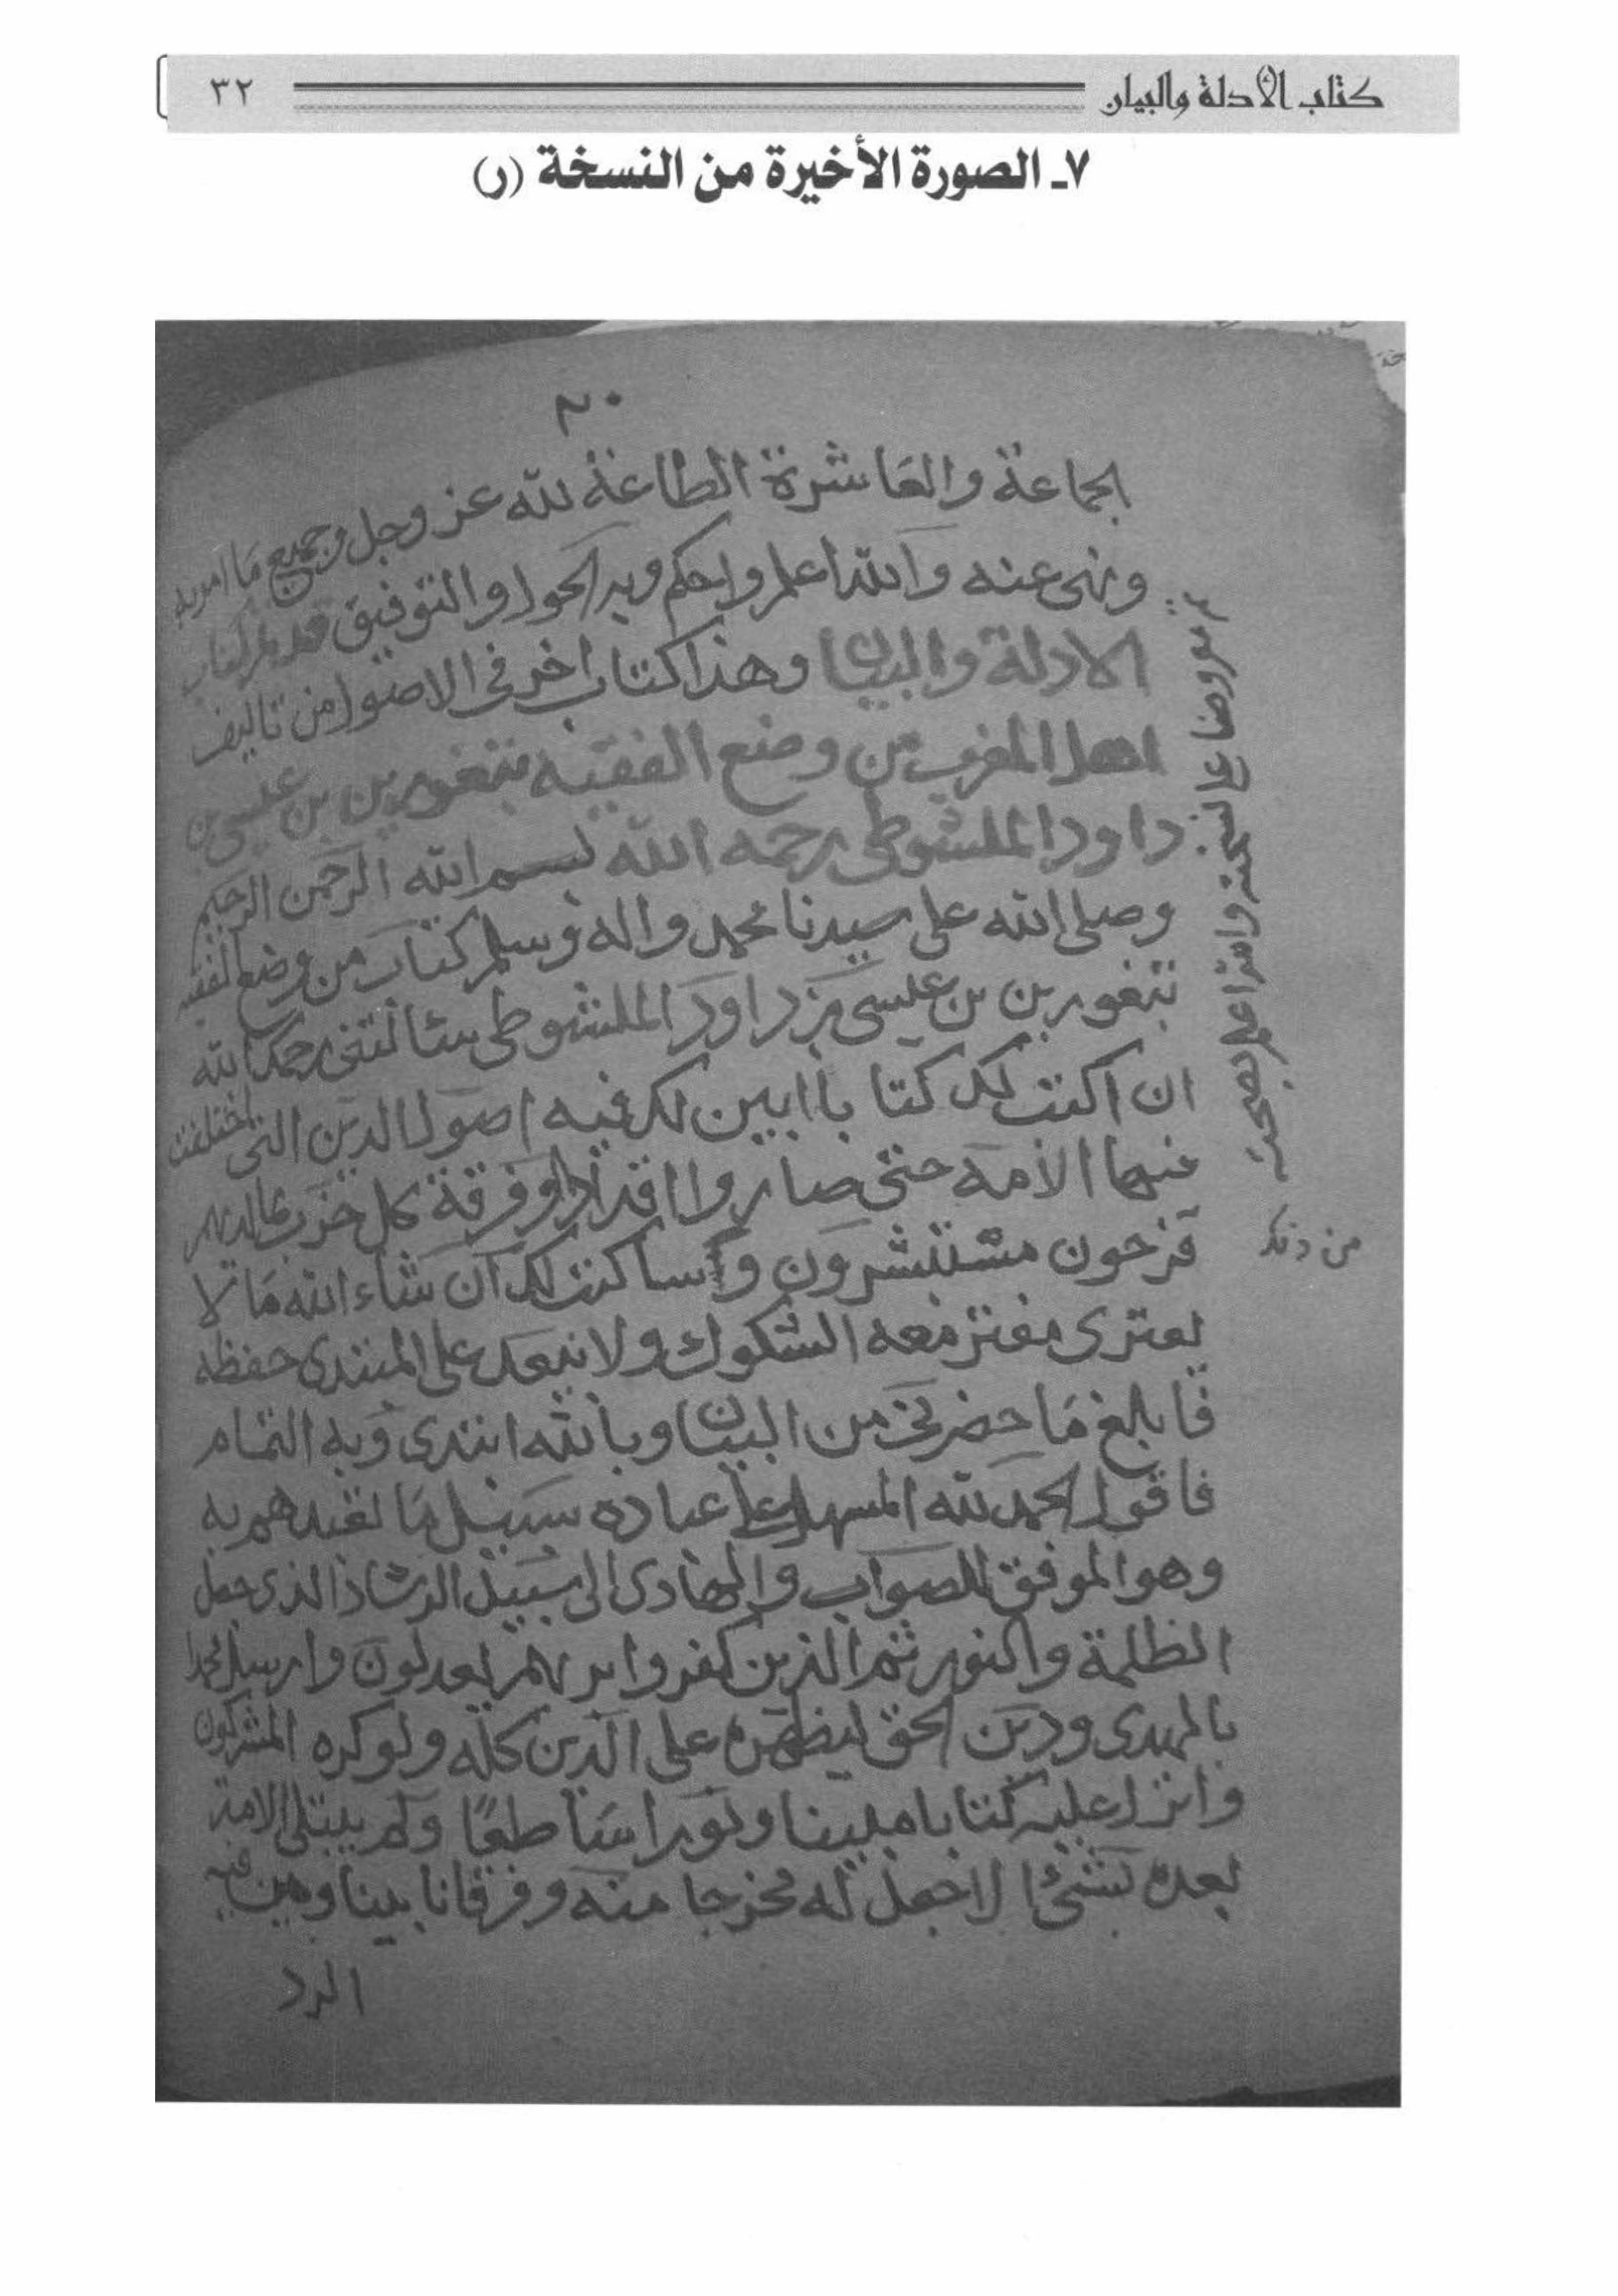 كتاب الأدلة والبيان
٣٢
٧ـ الصورة الأخيرة من النسخة (ر)
٢٠
الجماعة والعاشرة الطاعة لله عز وجل وجميع ما امر به
ونهى عنه والله اعلم واحكم وبه الحول والتوفيق قد تم كتاب
الادلة والبيان وهذا كتاب اخر في الاصول من تاليف
اهل المغرب من وضع الفقيه تبغورين بن عيسى بن
داود الملشوطي رحمه الله بسم الله الرحمن الرحيم
وصلى الله على سيدنا محمد واله وسلم كتاب من وضع الفقيه
تبغورين بن عيسى بن داود الملشوطي سئالتني رحمك الله
ان اكتب لك كتابا ابين لك فيه اصول الدين التي اختلفت
فيها الامة حتى صاروا وفرقة كل حزب بما لديهم
فرحون مستبشرون وأنا كتبت لك ان شاء الله ما لا
يعتري معه الشكوك ولا يبعد على المبتدي حفظه
فابلغ ما حضرني من البيان وبالله ابتدي وبه التمام
فاقول الحمد لله المسهل على عباده سبيل ما تعبدهم به
وهو الموفق للصواب والهادي الى سبيل الرشاد الذي جعل
الظلمة والنور ثم الذين كفروا بربهم يعدلون وارسل محمدا
بالهدى ودين الحق ليظهره على الدين كله ولو كره المشركون
وانزل عليه كتابا مبينا ونورا ساطعا ولم يبتلى الامة
بعده بشئ الا جعل له مخرجا منه وفرقانا بينا وبين فيه
الرد